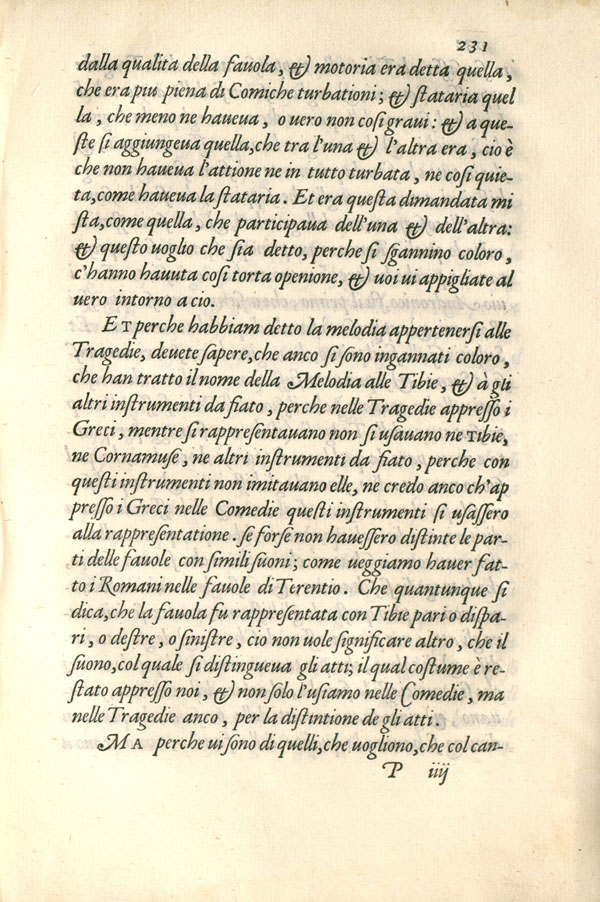 231
dalla qualita della fauola, & motoria era detta quella,
che era piu piena di Comiche turbationi; & stataria quel
la, che meno ne haueua, o uero non cosi graui: & a que-
ste si aggiungeua quella, che tra l'una & l'altra era, cio è
che non haueua l'attione ne in tutto turbata, ne cosi quie-
ta, come haueua la stataria. Et era questa dimandata mi
sta, come quella, che participaua dell'una & dell'altra:
& questo uoglio che sia detto, perche si sgannino coloro,
c'hanno hauuta cosi torta openione, & uoi ui appigliate al
uero intorno a cio.
ET perche habbiam detto la melodia appertenersi alle
Tragedie, deuete sapere, che anco si sono ingannati coloro,
che han tratto il nome della Melodia alle Tibie, & à gli
altri instrumenti da fiato, perche nelle Tragedie appresso i
Greci, mentre si rappresentauano non si usauano ne Tibie,
ne Cornamuse, ne altri instrumenti da fiato, perche con
questi instrumenti non imitauano elle, ne credo anco ch'ap
presso i Greci nelle Comedie questi instrumenti si usassero
alla rappresentatione. se forse non hauessero distinte le par
ti delle fauole con simili suoni; come ueggiamo hauer fat-
to i Romani nelle fauole di Terentio. Che quantunque si
dica, che la fauola fu rappresentata con Tibie pari o dispa-
ri, o destre, o sinistre, cio non uole significare altro, che il
suono, col quale si distingueua gli atti; il qual costume è re-
stato appresso noi, & non solo l'usiamo nelle Comedie, ma
nelle Tragedie anco, per la distintione de gli atti.
MA perche ui sono di quelli, che uogliono, che col can-
P iiij